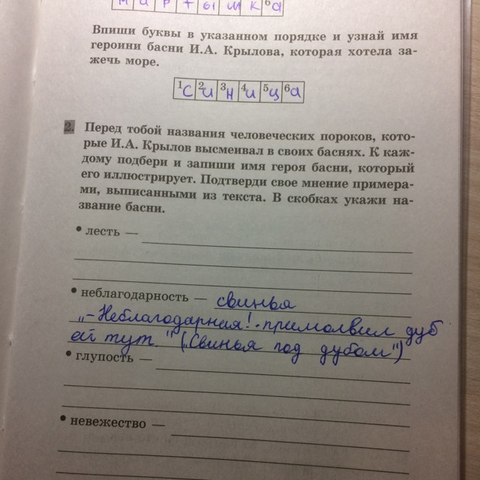 М А Р Т Ы Ш К 6 А
Впиши буквы в указанном порядке и узнай имя
героини басни И.А. Крылова, которая хотела за-
жечь море.
1 С 2 И 3 Н 4 И 5 Ц 6 А
2. Перед тобой названия человеческих пороков, кото-
рые И.А. Крылов высмеивал в своих баснях. К каж-
дому подбери и запиши имя героя басни, который
его иллюстрирует. Подтверди свое мнение примера-
ми, выписанными из текста. В скобках укажи на-
звание басни.
• лесть —
• неблагодарность — свинья
„-Неблагодарная! - примолвил дуб
ей тут." („Свинья под дубом")
• глупость —
• невежество —